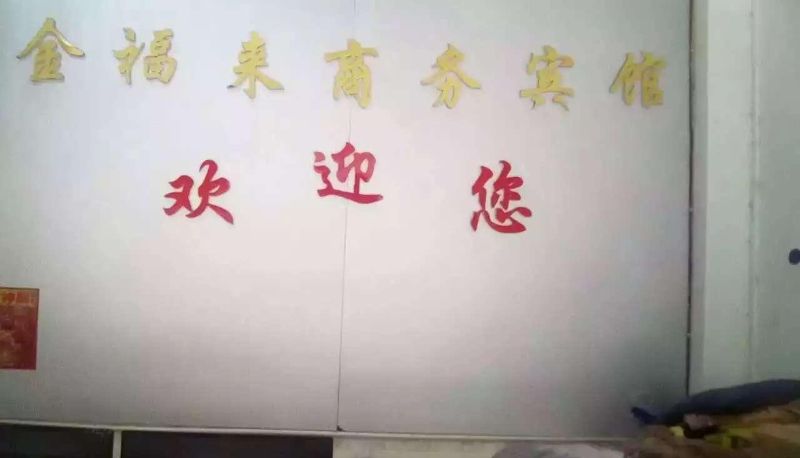 金福来商务宾馆
欢迎您